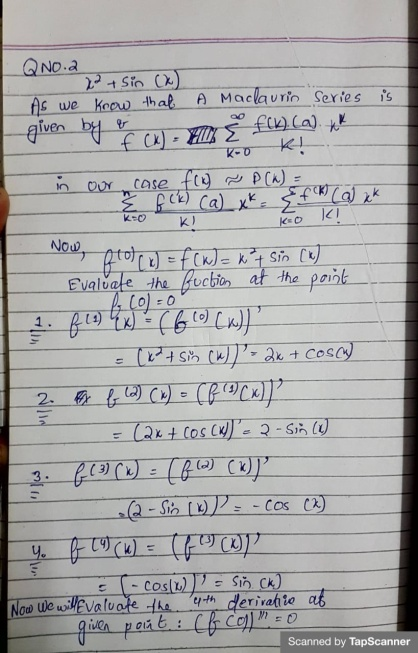 Q NO.2
x² + sin (x)
As we know that A Maclaurin series is
given by
f (x) = ∞ Σ k=0 f(k)(a) / k! x^k
in our case f(x) ≈ P(x) =
n Σ k=0 f^(k) (a) / k! x^k = 5 Σ k=0 f^(k) (a) / k! x^k
Now, f^(0) (x) = f(x) = x² + sin (x)
Evaluate the fuction at the point
f (0) = 0
1. f^(1) (x) = (f^(0) (x))'
= (x² + sin (x))' = 2x + cos(x)
2. f^(2) (x) = (f^(1) (x))'
= (2x + cos (x))' = 2 - sin (x)
3. f^(3) (x) = (f^(2) (x))'
= (2 - sin (x))' = - cos (x)
4. f^(4) (x) = (f^(3) (x))'
= (- cos(x))' = sin (x)
Now we will Evaluate the 4th derivative at
given point : (f (0))'''' = 0
Scanned by TapScanner